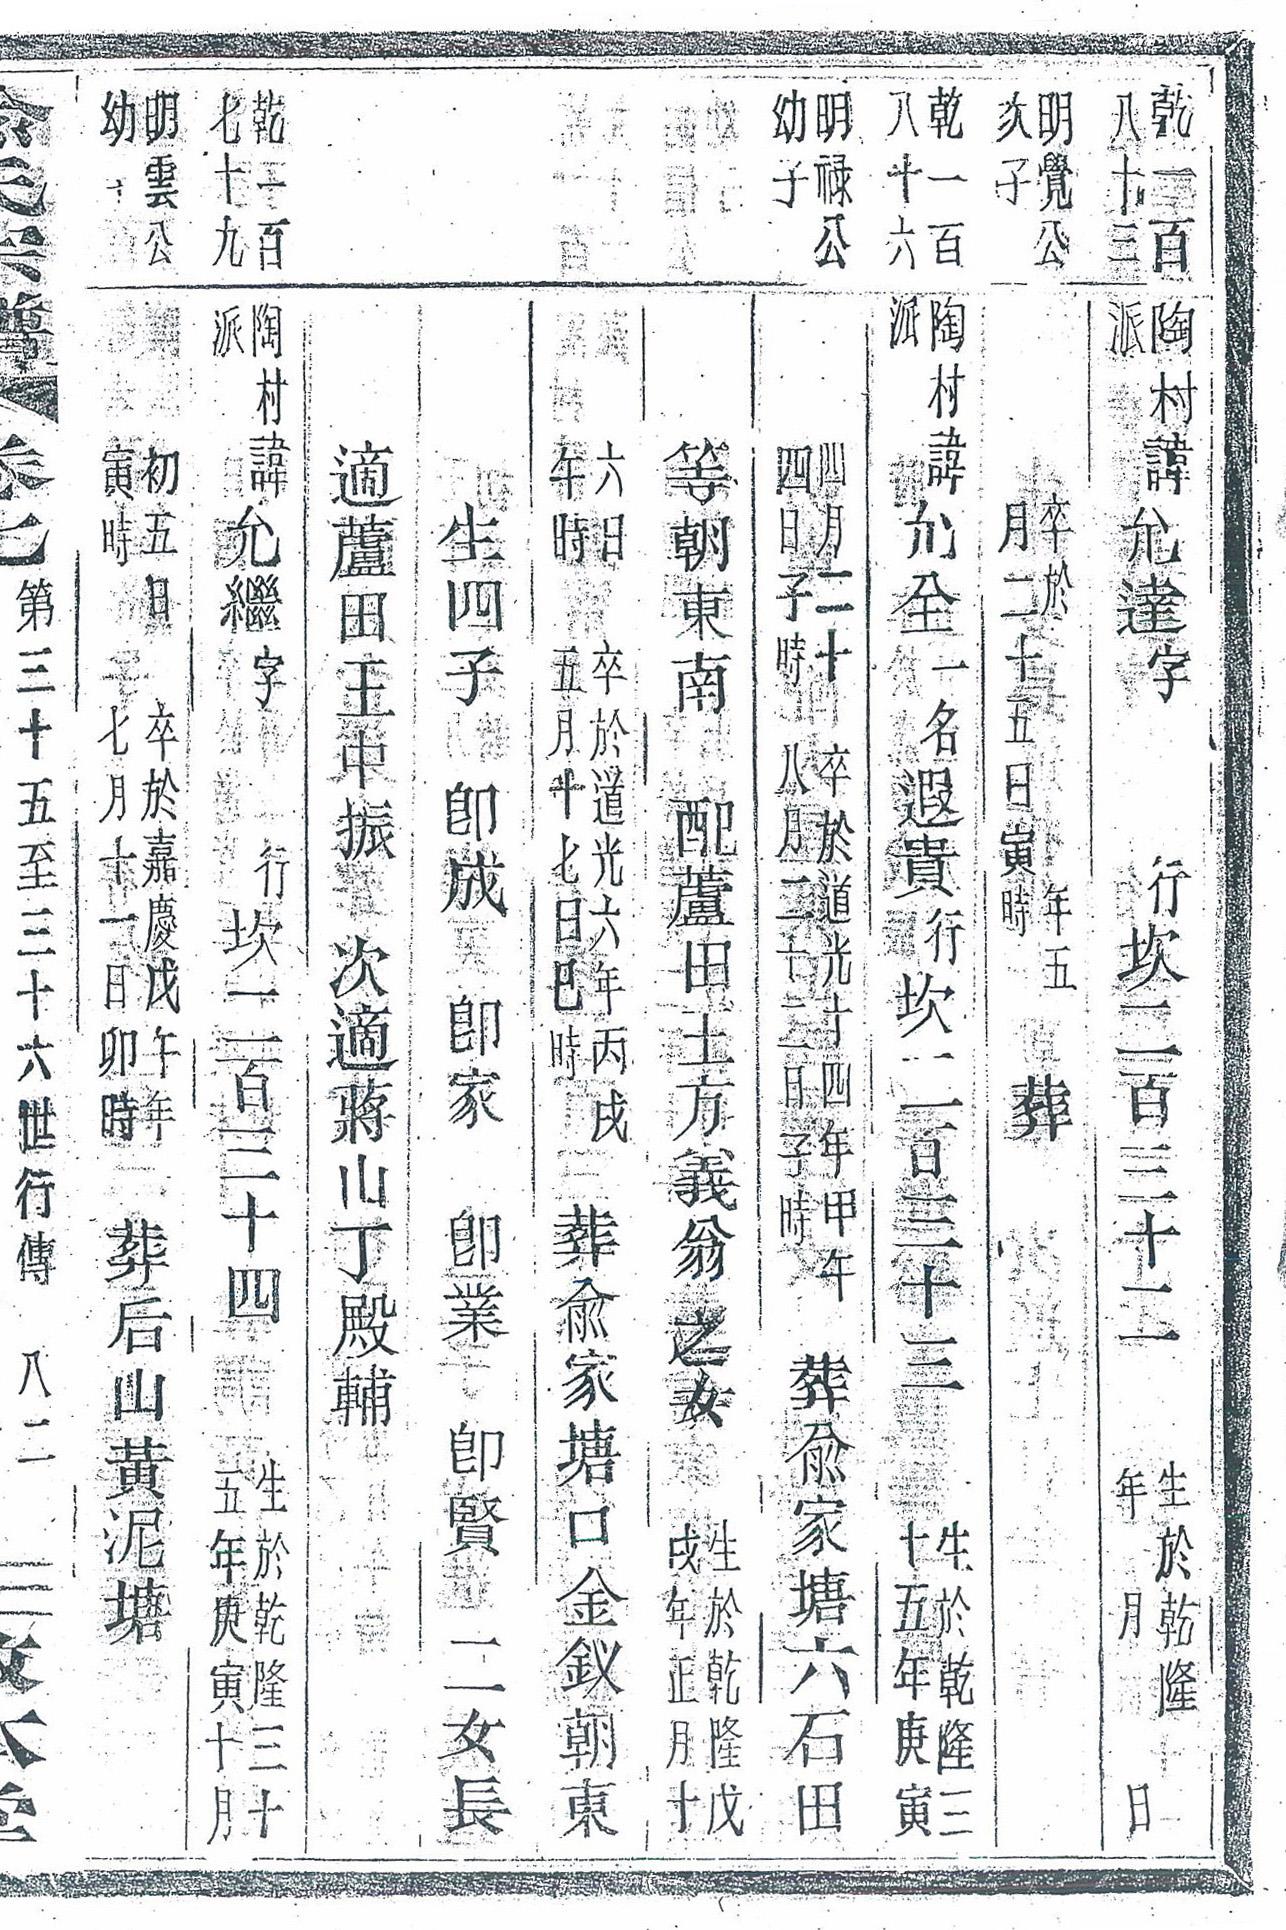 乾一百八十三
明覺公次子
陶村派諱允達字 行坎二百三十二 生於乾隆 年 月 日
卒於 年五月二十五日寅時 葬
乾一百八十六
明祿公幼子
陶村派諱允至一名遐貴行坎二百三十三 生於乾隆三十五年庚寅
四月二十四日子時 卒於道光十四年甲午八月二十二日子時 葬俞家塘六石田
等朝東南 配蘆田王方義翁之女 生於乾隆戊戌年正月十
六日午時 卒於道光六年丙戌五月十七日巳時 葬俞家塘口金釵朝東
生四子 卽成 卽家 卽業 卽賢 二女長
適蘆田王中振 次適蔣山丁殿輔
乾一百七十九
明雲公幼子
陶村派諱允繼字 行坎一百三十四 生於乾隆三十五年庚寅十月
初五日寅時 卒於嘉慶戊午年七月十一日卯時 葬后山黃泥塘
氏宗譜 卷七 第三十五至三十六世行傳 八二 敦本堂